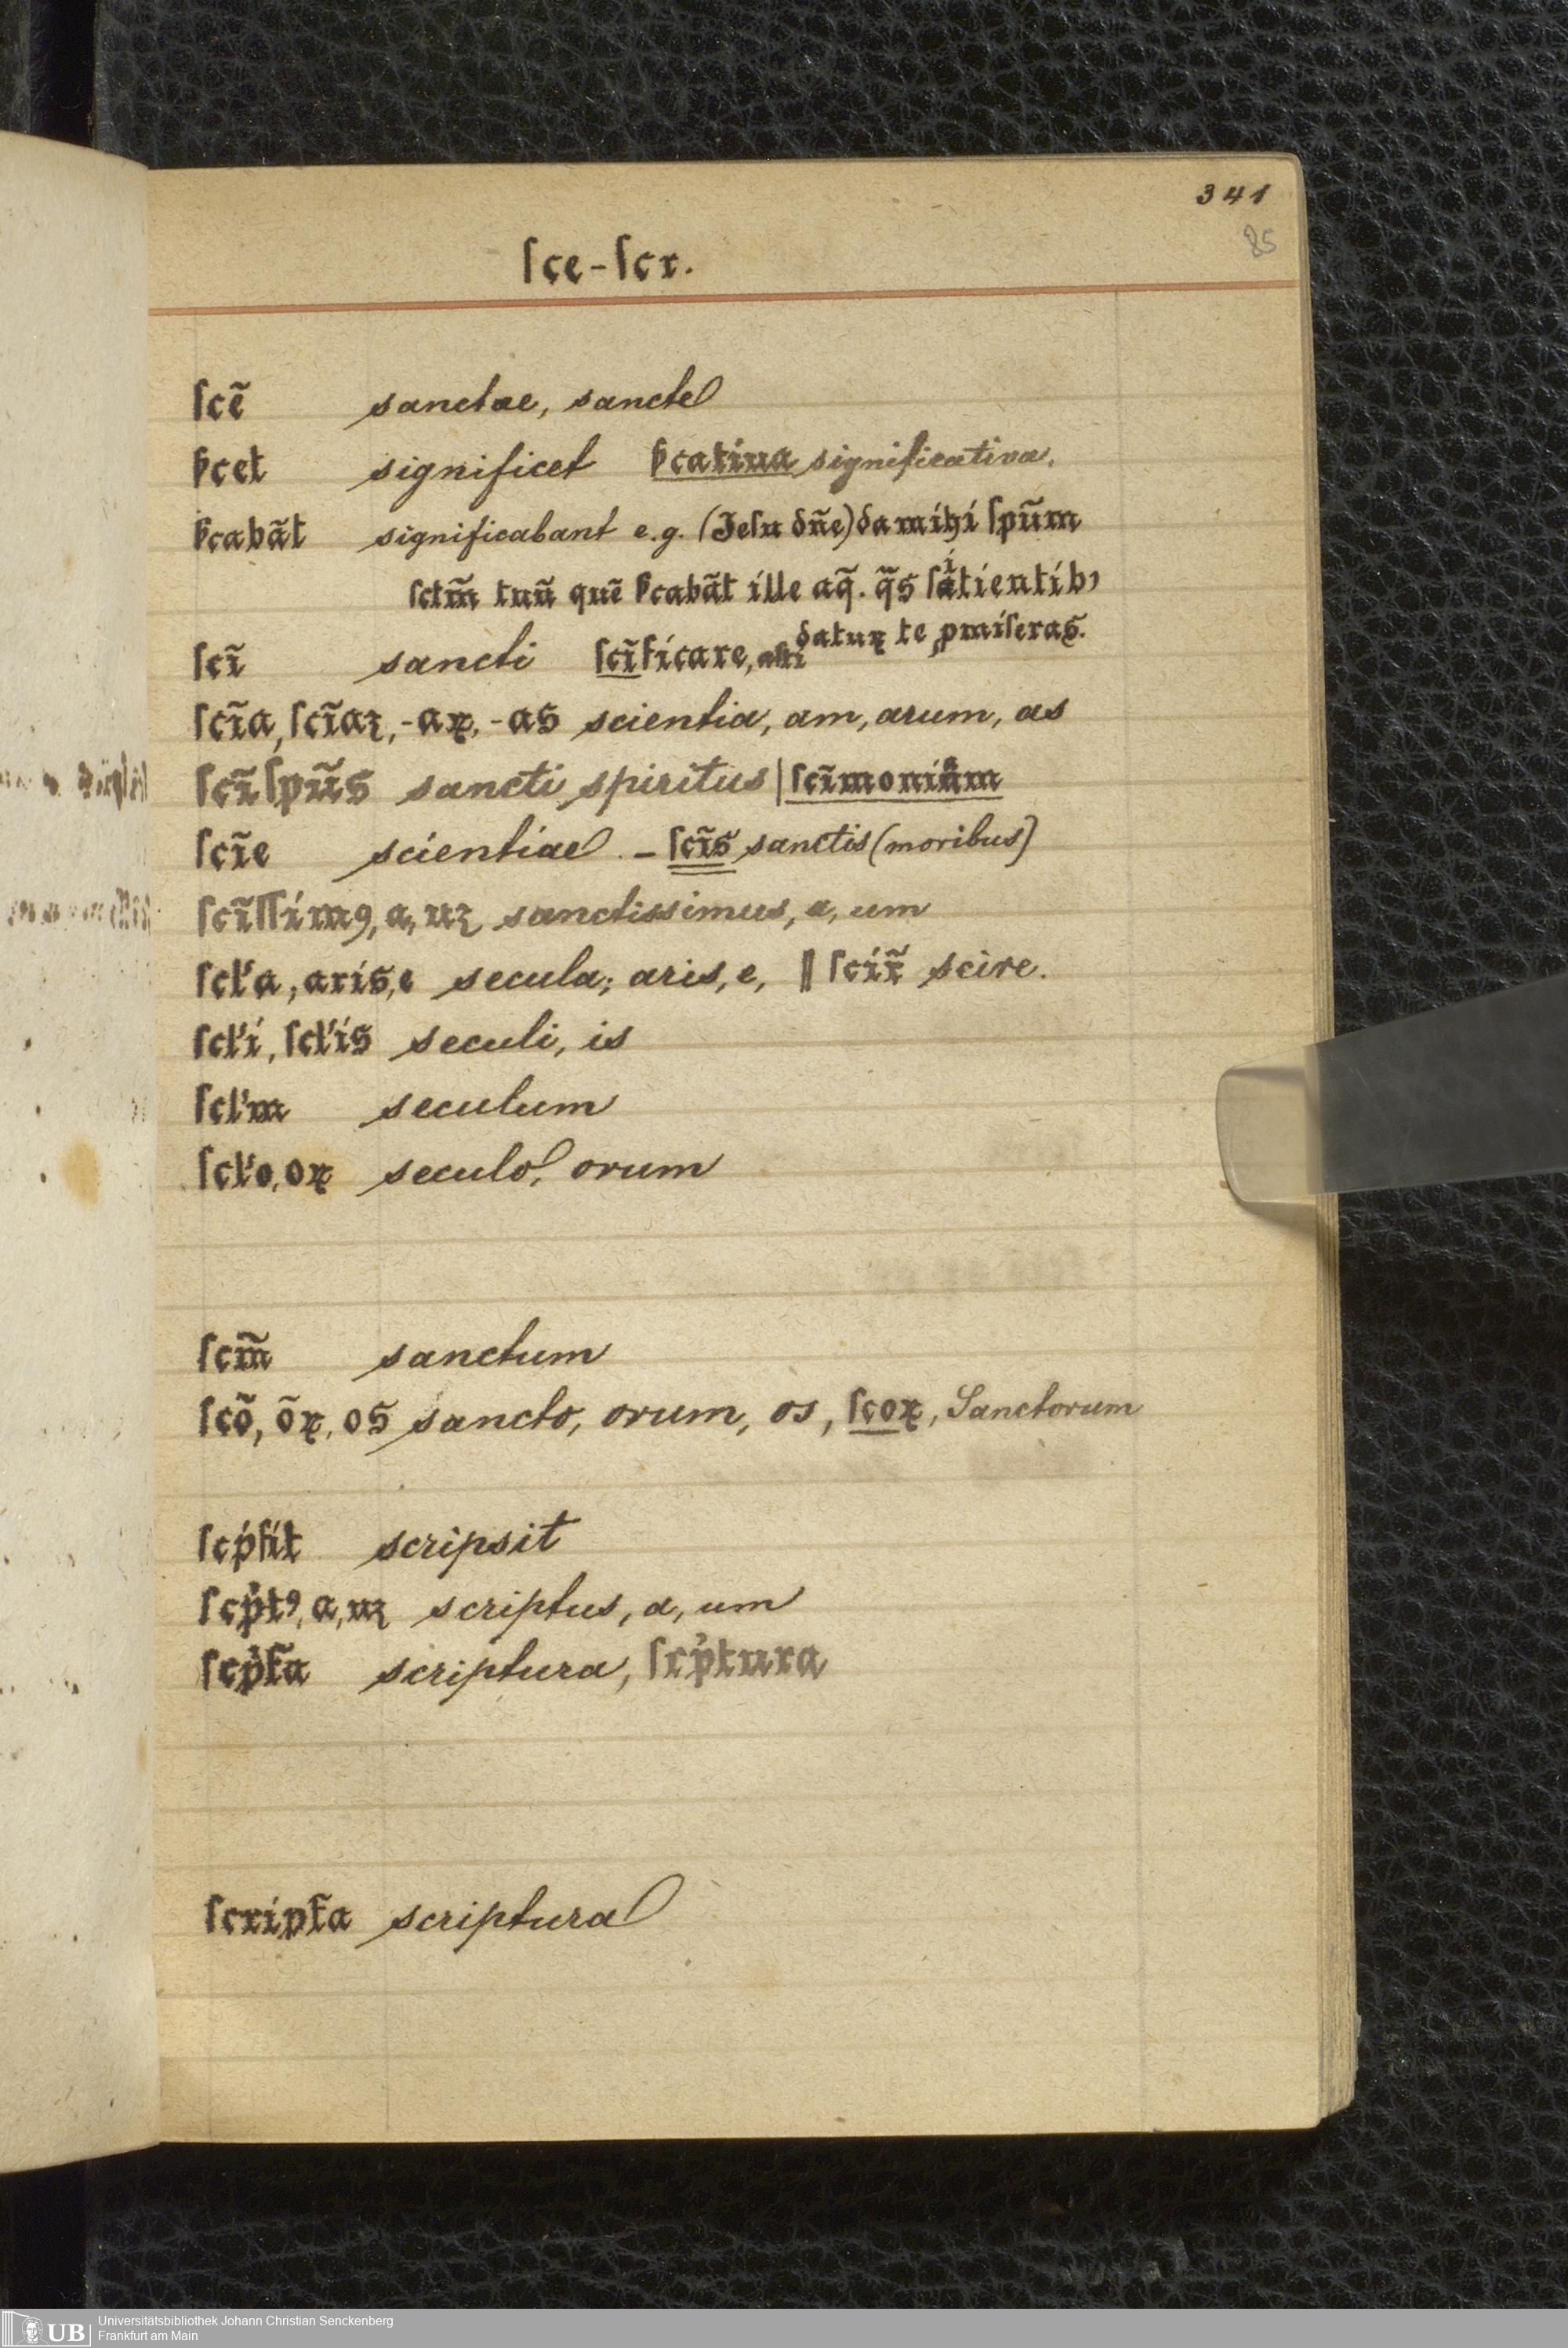 341
85
ſce-ſcr.
ſcẽ sanctae, sancte
ſ̵cet significet ſ̵catiua significativa.
ſ̵cabãt significabant e.g. (Jeſu dñe) da mihi ſpũm
ſctm̃ tuũ quẽ ſ̵cabãt ille aq̃. q̃s ſitientibꝫ
datuꝝ te ꝓmiſeras.
ſcĩ sancti ſcĩficare,
ſcĩa, ſcĩaꝫ, -aꝝ, -as scientia, am, arum, as
ſcĩſpũs sancti spiritus | ſcĩmoniũm
ſcĩe scientiae - ſcĩs sanctis (moribus)
ſcĩſſimꝯ, a, uꝫ sanctissimus, a, um
ſcl'a, aris, e secula; aris, e, || ſcir̃ scire.
ſcl'i, ſcl'is seculi, is
ſcl'm seculum
ſcl'o, oꝝ seculo, orum
ſcm̃ sanctum
ſcõ, õꝝ, os sancto, orum, os, ſcoꝝ, Sanctorum
ſcp̍ſit scripsit
ſcp̍tꝯ, a, uꝫ scriptus, a, um
ſcp̍t̃a scriptura, ſcp̍tura
ſcript̃a scriptura
UB
Universitätsbibliothek Johann Christian Senckenberg
Frankfurt am Main